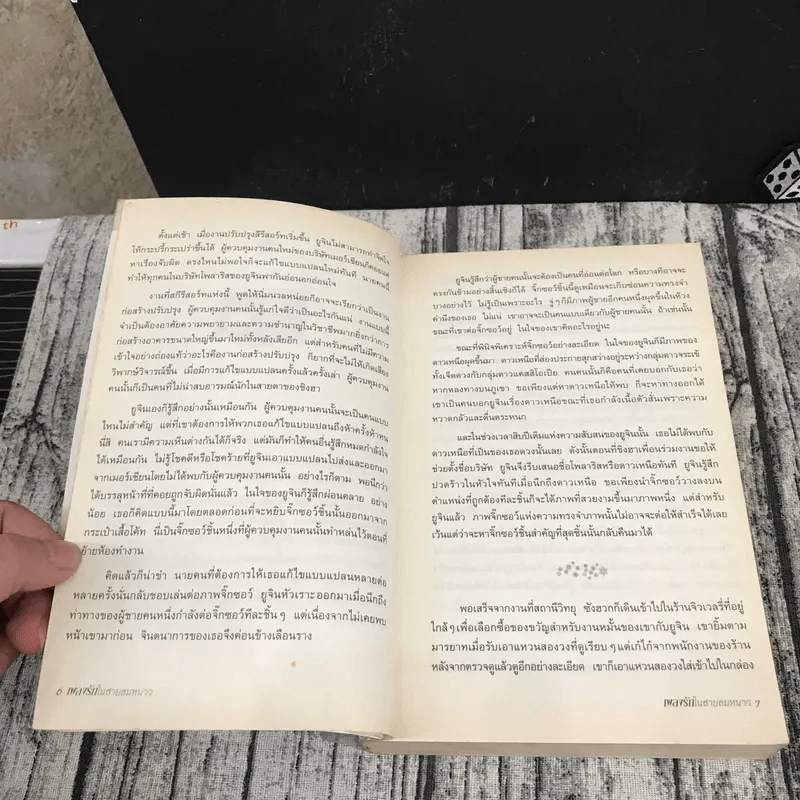 ตั้งแต่เช้า เมื่องานปรับปรุงสีรีสอร์ทเริ่มขึ้น ยูจินไม่สามารถทำจิตใจ
ให้กระปรี้กระเปร่าขึ้นได้ ผู้ควบคุมงานคนใหม่ของบริษัทเมอร์เชียนก็คอยแต่
หาเรื่องจับผิด ตรงไหนไม่พอใจก็จะแก้ไขแบบแปลนใหม่ทันที นายคนนี้
ทำให้ทุกคนในบริษัทโพลาริสของยูจินพากันอ่อนอกอ่อนใจ
งานที่สกีรีสอร์ทแห่งนี้ พูดให้นิ่มนวลหน่อยก็อาจจะเรียกว่าเป็นงาน
ก่อสร้างปรับปรุง ผู้ควบคุมงานคนนั้นรู้แก่ใจดีว่าเป็นอะไรกันแน่ งานแบบนี้
จำเป็นต้องอาศัยความพยายามและความชำนาญในวิชาชีพมากยิ่งกว่าการ
ก่อสร้างอาคารขนาดใหญ่ขึ้นมาใหม่ทั้งหลังเสียอีก แต่สำหรับคนที่ไม่มีความ
เข้าใจอย่างถ่องแท้ว่าอะไรคืองานก่อสร้างปรับปรุง ก็ยากที่จะไม่ให้เกิดเสียง
วิพากษ์วิจารณ์ขึ้น เมื่อมีการแก้ไขแบบแปลนครั้งแล้วครั้งเล่า ผู้ควบคุมงาน
คนนั้นก็เป็นคนที่ไม่น่าสบอารมณ์นักในสายตาของชิงฮา
ยูจินเองก็รู้สึกอย่างนั้นเหมือนกัน ผู้ควบคุมงานคนนั้นจะเป็นคนแบบ
ไหนไม่สำคัญ แต่ที่เขาต้องการให้พวกเธอแก้ไขแบบแปลนถึงห้าครั้งห้าหน
นี่สิ คนเรามีความเห็นต่างกันได้ก็จริง แต่มันก็ทำให้คนอื่นรู้สึกหมดกำลังใจ
ได้เหมือนกัน ไม่รู้โชคดีหรือโชคร้ายที่ยูจินเอาแบบแปลนไปส่งและออกมา
จากเมอร์เชียนโดยไม่ได้พบกับผู้ควบคุมงานคนนั้น อย่างไรก็ตาม พอนึกว่า
ได้บรรลุหน้าที่ที่คอยถูกจับผิดนั่นแล้ว ในใจของยูจินก็รู้สึกผ่อนคลาย อย่าง
น้อย เธอก็คิดแบบนี้มาโดยตลอดก่อนที่จะหยิบจิ๊กซอว์ชิ้นนั้นออกมาจาก
กระเป๋าเสื้อโค้ท นี่เป็นจิ๊กซอว์ชิ้นหนึ่งที่ผู้ควบคุมงานคนนั้นทำหล่นไว้ตอนที่
ย้ายห้องทำงาน
คิดแล้วก็น่าขำ นายคนที่ต้องการให้เธอแก้ไขแบบแปลนหลายต่อ
หลายครั้งนั่นกลับชอบเล่นต่อภาพจิ๊กซอว์ ยูจินหัวเราะออกมาเมื่อนึกถึง
ท่าทางของผู้ชายคนหนึ่งกำลังต่อจิ๊กซอว์ทีละชิ้นๆ แต่เนื่องจากไม่เคยพบ
หน้าเขามาก่อน จินตนาการของเธอจึงค่อนข้างเลือนราง
6 เพลงรักในสายลมหนาว
ยูจินรู้สึกว่าผู้ชายคนนั้นจะต้องเป็นคนที่อ่อนต่อโลก หรือบางทีอาจจะ
ตรงกันข้ามอย่างสิ้นเชิงก็ได้ จิ๊กซอว์ชิ้นนี้ดูเหมือนจะเก็บซ่อนความทรงจำ
บางอย่างไว้ ไม่รู้เป็นเพราะอะไร จู่ๆ ก็มีภาพผู้ชายอีกคนหนึ่งผุดขึ้นในห้วง
คำนึงของเธอ ไม่แน่ เขาอาจจะเป็นคนแบบเดียวกับผู้ชายคนนั้น ถ้าเช่นนั้น
ขณะที่เขาต่อจิ๊กซอว์อยู่ ในใจของเขาคิดอะไรอยู่นะ
ขณะที่พินิจพิเคราะห์จิ๊กซอว์อย่างละเอียด ในใจของยูจินก็มีภาพของ
ดาวเหนือผุดขึ้นมา ดาวเหนือที่ส่องประกายสุกสว่างอยู่ระหว่างกลุ่มดาวจระเข้
ทั้งเจ็ดดวงกับกลุ่มดาวแคสสิโอเปีย คนคนนั้นก็คือคนที่เคยบอกกับเธอว่า
หากหลงทางบนภูเขา ขอเพียงแต่หาดาวเหนือให้พบ ก็จะหาทางออกได้
เขาเป็นคนบอกยูจินเรื่องดาวเหนือขณะที่เธอกำลังเนื้อตัวสั่นเพราะความ
หวาดกลัวและตื่นตระหนก
และในช่วงเวลาสิบปีเต็มแห่งความสับสนของยูจินนั้น เธอไม่ได้พบกับ
ดาวเหนือที่เป็นของเธอดวงนั้นเลย ดังนั้นตอนที่ชิงฮาเพื่อร่วมงานขอให้
ช่วยตั้งชื่อบริษัท ยูจินจึงรีบเสนอชื่อโพลาริสหรือดาวเหนือทันที ยูจินรู้สึก
ปวดร้าวในหัวใจทันทีเมื่อนึกถึงดาวเหนือ ขอเพียงนำจิ๊กซอว์วางลงบน
ตำแหน่งที่ถูกต้องทีละชิ้นก็จะได้ภาพที่สวยงามขึ้นมาภาพหนึ่ง แต่สำหรับ
ยูจินแล้ว ภาพจิ๊กซอว์แห่งความทรงจำภาพนั้นไม่อาจจะต่อให้สำเร็จได้เลย
เว้นแต่ว่าจะหาจิ๊กซอว์ชิ้นสำคัญที่สุดชิ้นนั้นกลับคืนมาได้
พอเสร็จจากงานที่สถานีวิทยุ ซังฮวกก็เดินเข้าไปในร้านจิวเวลรี่ที่อยู่
ใกล้ๆเพื่อเลือกซื้อของขวัญสำหรับงานหมั้นของเขากับยูจิน เขายิ้มตาม
มารยาทเมื่อรับเอาแหวนสองวงที่ดูเรียบๆแต่เก๋ไก๋จากพนักงานของร้าน
หลังจากตรวจดูแล้วดูอีกอย่างละเอียด เขาก็เอาแหวนสองวงใส่เข้าไปในกล่อง
เพลงรักในสายลมหนาว 7